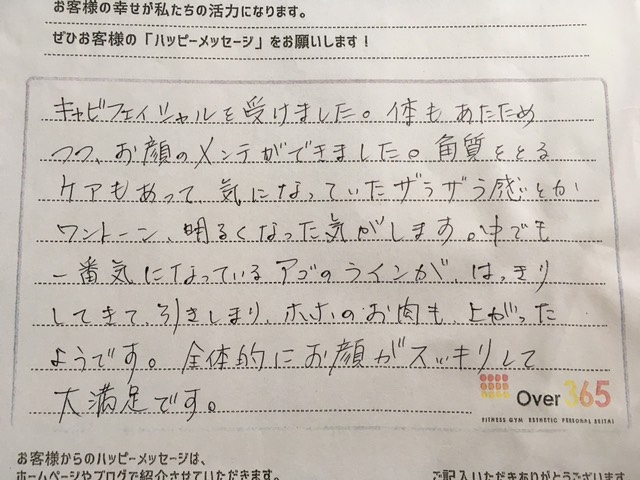 お客様の幸せが私たちの活力になります。
ぜひお客様の「ハッピーメッセージ」をお願いします！
キャビフェイシャルを受けました。体もあたため
つつ、お顔のメンテができました。角質をとる
ケアもあって、気になっていたザラザラ感とか
ワントーン、明るくなった気がします。中でも
一番気になっているアゴのラインが、はっきり
してきて、引きしまり、ホホのお肉も、上がった
ようです。全体的にお顔がスッキリして
大満足です。
Over 365
FITNESS GYM ESTHETIC PERSONAL SEITAI
お客様からのハッピーメッセージは、
ホームページやブログで紹介させていただきます。
ご記入いただきありがとうございます